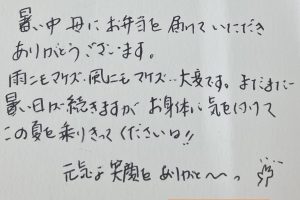 暑い中 母にお弁当を届けていただき
ありがとうございます。
雨ニモマケズ・風ニモマケズ・・大変です。まだまだ
暑い日が続きますが お身体に気を付けて
この夏を乗りきってくださいね!!
元気な笑顔をありがと〜っ